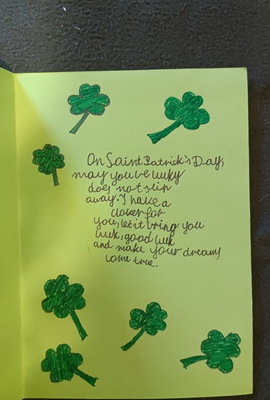 On Saint Patrick's Day,
may you be lucky
does not slip
away. I have a
clover for
you, let it bring you
luck, good luck
and make your dreams
come true.